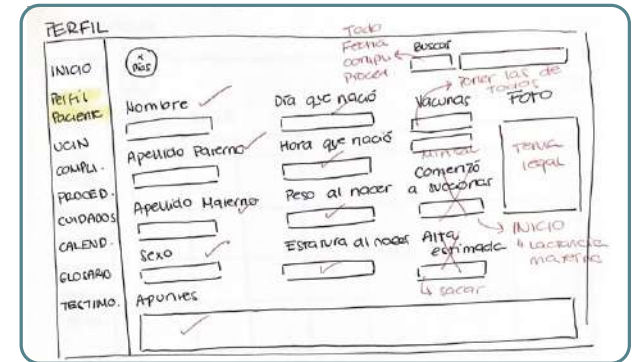 PERFIL
INICIO
Perfil
Paciente
UCIN
COMPLI.
PROCED.
CUIDADOS
CALEND.
GLOSARIO
TESTIMO.
X
DÍAS
Todo
Fecha
compli
Proced
Buscar
Nombre
Apellido Paterno
Apellido Materno
Sexo
Apuntes
Día que nació
Hora que nació
Peso al nacer
Estatura al nacer
Vacunas
Poner las de
todos
minsal
Comenzó
a succionar
Alta
estimada
sacar
FOTO
Tema
legal
INICIO
Lactancia
materna